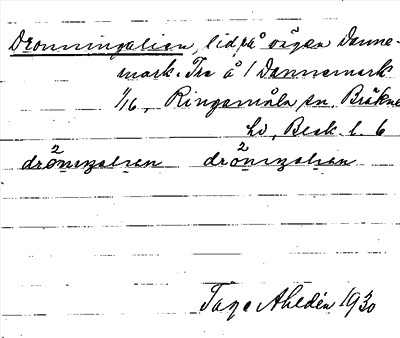 Dronningalien, lid på vägen Danne-
mark. Tre å 1 Dannemark
1/16, Ringamåla sn, Bräkne
hd, Besk. l. 6
drönigalian drönigalian
Tage Ahldén 1930